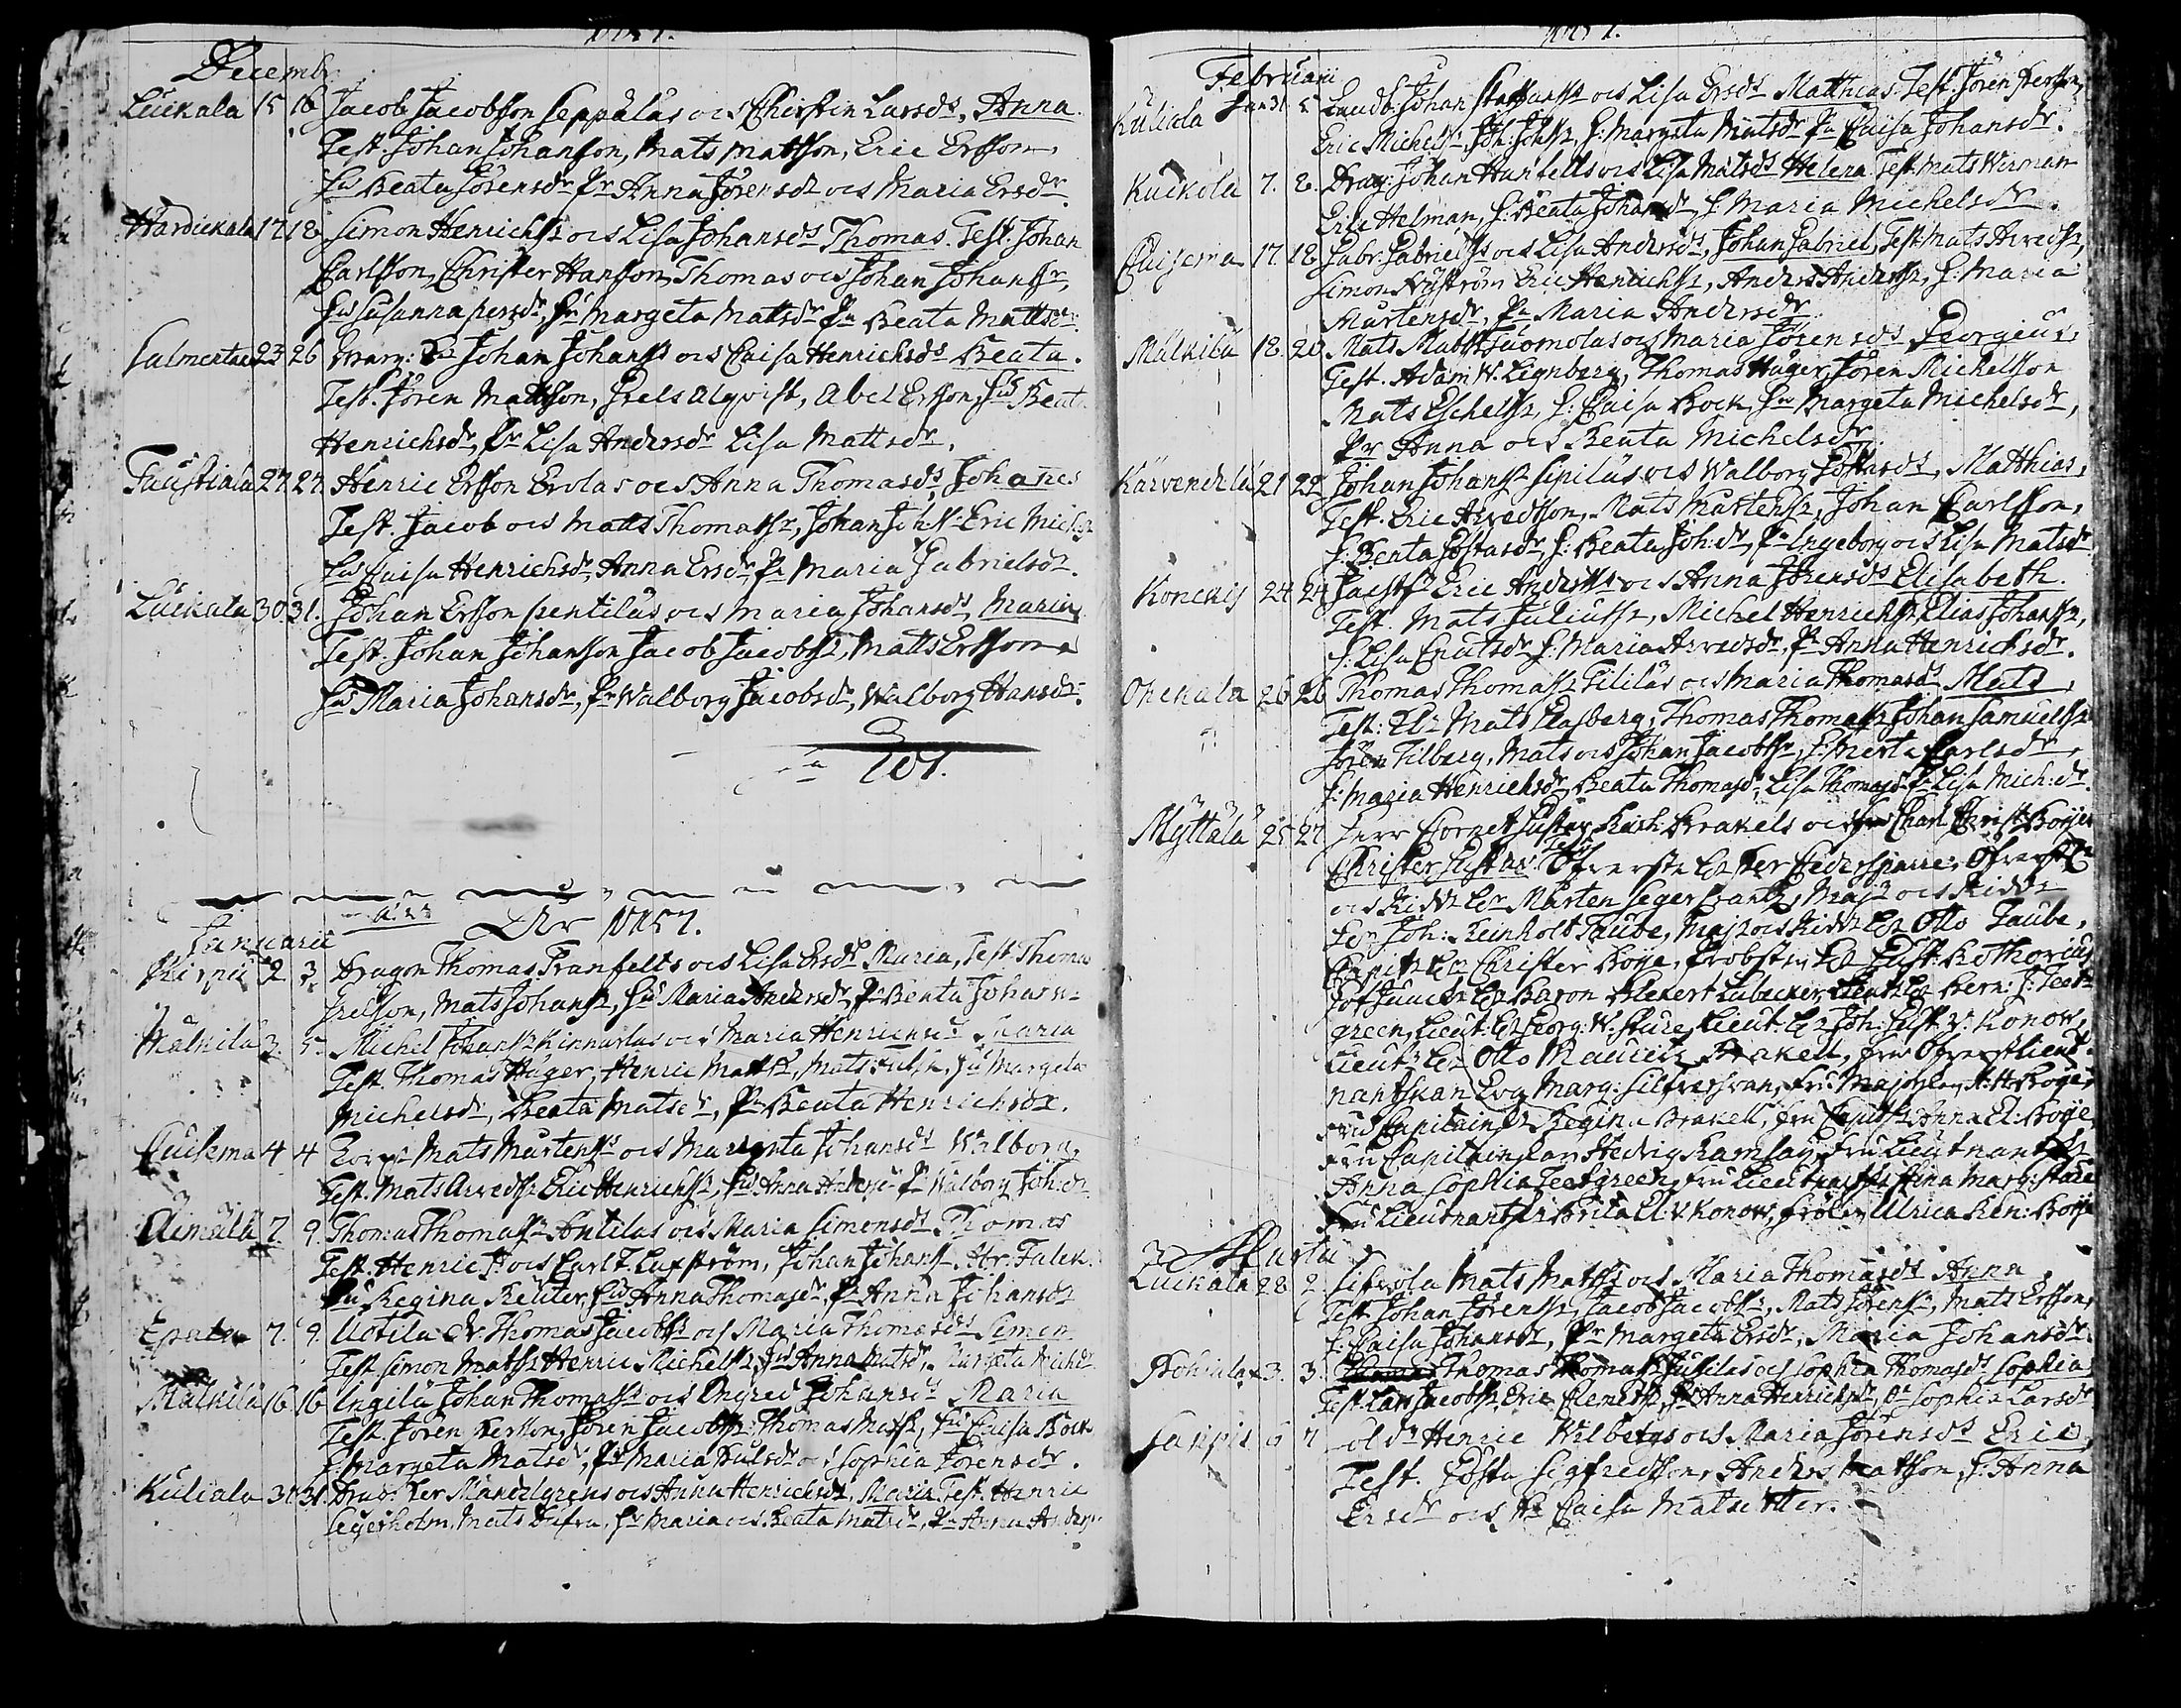 Decembr
Luickala 15 16 Jacob Jacobsson Seppäläs och Christin Larsds, Anna.
Test. Johan Johansson, Mats Mattson, Eric Ersson,
Hu Beata Jörensdr Pr Anna Jörensdr och Maria Ersdr.
Hardickala 17. 18. Simon Henrichss och Lisa Johansds Thomas. Test. Johan
Carlsson, Christer Hansson, Thomas och Johan Johanssr,
Hu Susanna persdr, Hu Margeta Mattsdr Pr Beata Mattsdr.
Salmentaca 23 26 Johan Johanss och Caisa Henrichsds Beata.
Test. Jören Mattsson, Grels Alqvist, Abel Ersson, Hu Beata
Henrichsdr, Pr Lisa Andersdr Lisa Mattsdr.
27. 27. Henric Ersson Erolas och Anna Thomasds Johanes
Test. Jacob och Matts Thomassr, Johan Joh:ss Eric Mich:sr
Hu Caisa Henrichsdr Anna Ersdr, Pr Maria Gabrielsdr.
Luickala 30. 31. Johan Ersson Pentiläs och Maria Johansds Maria
Test. Johan Johansson Jacob Jacobssr, Matts Ersson
Hu Maria Johansdr, Pr Walborg Jacobsdr, Walborg Hansdr.
201.
År 1757.
Januarii
2 3. Dragon Thomas Tranfelts och Lisa Ersds Maria, Test. Thomas
Grelsson, Mats Johanss, Hu Maria Andersdr, Pr Beata Johans
Mälkilä 3. 5. Michel Johanss Kinnarlas och Maria Henrichsds Maria
Test. Thomas Häger, Henric Mattss, Mats Hu Margeta
Michelsdr, Beata Matsdr, Pr Beata Henrichsdr.
4 4 Mats Mårtenss och Margeta Johansds Walborg,
Test. Mats Arvedss Eric Henrichss, Hu Anna Andersdr Pr Walborg Joh:dr
Äimälä 7. 9. Thomas Thomass Antilas och Maria Simonsds Thomas
Test. Henric J: och Carl T. Luxström, Johan Johanss, Hr. Falck.
Regina Reuter, Hu Anna Thomasdr, Pr Anna Johansdr
7. 9. Uotila Thomas Jacobss och Maria Thomasds Simon
Test. Simon Matss Henric Michelss, Hu Anna Matsdr. Margeta Mich:dr
Mälkilä 16 16 Ingilä Johan Thomass och Ingred Johansds Maria
Test. Jören Persson, Jören Jacobss, Thomas Matss, Hu Caisa Bock
Margeta Matsdr, Pr Maria och Sophia Jörensdr.
Kuliala 31 31. Per Mandelgrens och Anna Henrichsds Maria Test. Henric
Segerholm, Mats Hu Maria och Beata Matsdr, Pr Anna Andersdr
1757.
Februarii
Kuliala Jan 31. 5 Johan och Lisa Ersds Matthias. Test. Jören Persson,
Eric Michelss, Joh: Johss, H: Margeta Matsdr Pr Caisa Johansdr.
Kuickola 7. 8. Drag: Johan Hanfelts och Lisa Matsds Helena. Test. Mats Wirman
Eric Helman, H: Beata Johansdr, H: Maria Michelsdr.
17. 18. Gabr: Gabrielss och Lisa Andersds, Johan Gabriel, Test: Mats Arvedss,
Simon Nyström Eric Henrichss, Anders Anderss, H: Maria
Mårtensdr, Pr Maria Andersdr.
Mälkilä 18. 20. Mats Matss och Maria Jörensds Georgius,
Test. Adam W. Lignberg, Thomas Häger, Jören Michelsson
Mats Eschelss, H: Caisa Bock, Hu Margeta Michelsdr,
Pr Anna och Beata Michelsdr.
21 22 Johan Johanss Sipiläs och Walborg Göstasds, Matthias,
Test. Eric Arvedsson, Mats Mårtenss, Johan Carlsson,
H: Beata Göstasdr, H: Beata Joh:dr, Pr Ingeborg och Lisa Matsdr
24 24 Eric Anderss och Anna Jörensds Elisabeth.
Test. Mats Juliuss, Michel Henrichss, Elias Johanss,
H: Lisa Cnutsdr, H: Maria Arvedsdr, Pr Anna Henrichsdr.
Onkala 26 26 Thomas Thomass och Maria Thomasds Mats,
Test: Hr Mats Thomas Thomass, Johan Samuelss
Jören Tilberg, Mats och Johan Jacobssr, H: Merta Carlsdr,
H: Maria Henrichsdr, Beata Thomasdr, Lisa Thomasdr Pr Lisa Mich:dr.
Myttälä 25 27 Herr Cornet Gustav Reinh: Brakels och Charl: Christ: Boije
Christer Gustav. Test: Öfverste Hr Per Cederspane, Öfverst
och Ridd: Hr Mårten Seger Major och Ridd:
Hr Joh: Reinholt Taube, Maj:r och Ridd: Hr Otto Taube,
Capit: Hr Christer Boije, Probsten Hr Gust: Bothovius
Hr Baron Blekert Lübecker, Lieut: Hr Bern: J: Teet
green, Lieut: Hr Georg: W. Sture, Lieut: Hr Joh: Gust: v: Konow,
Lieut: Hr Otto Mauritz Brakell, fru Öfverstlieut
nantskan Eva Marg: Silfversvan, fru Majorskan Boije,
fru Capitainsk: Regina Brakell, fru Capitsk: Anna El: Boije
fru Capitainskan Hedvig Ramsay, fru Lieutnantsk:
Anna Sophia Teetgreen, fru Lieutnantsk: Stina Marg: Sture
fru Lieutnantsk: Brita El: v. Konow, fröken Ulrica Ren: Boije
Martii
Luickala 28 2. Mats Matss och Maria Thomasds Anna
Test. Johan Jörenss, Jacob Jacobss, Mats Jörenss, Mats Ersson,
H: Caisa Johansdr, Pr Margeta Ersdr, Maria Johansdr
3. 3. Thomas Thomass och Sophia Thomasds Sophia
Test. Lars Jacobss, Eric Clemetss, Hu Anna Henrichsdr, Pr Sophia Larsdr
6 7 Henric Wilbergs och Maria Jörensds Eric,
Test. Gösta Sigfredsson, Anders Matsson, H: Anna
Ersdr och Pr Caisa Matsdotter.